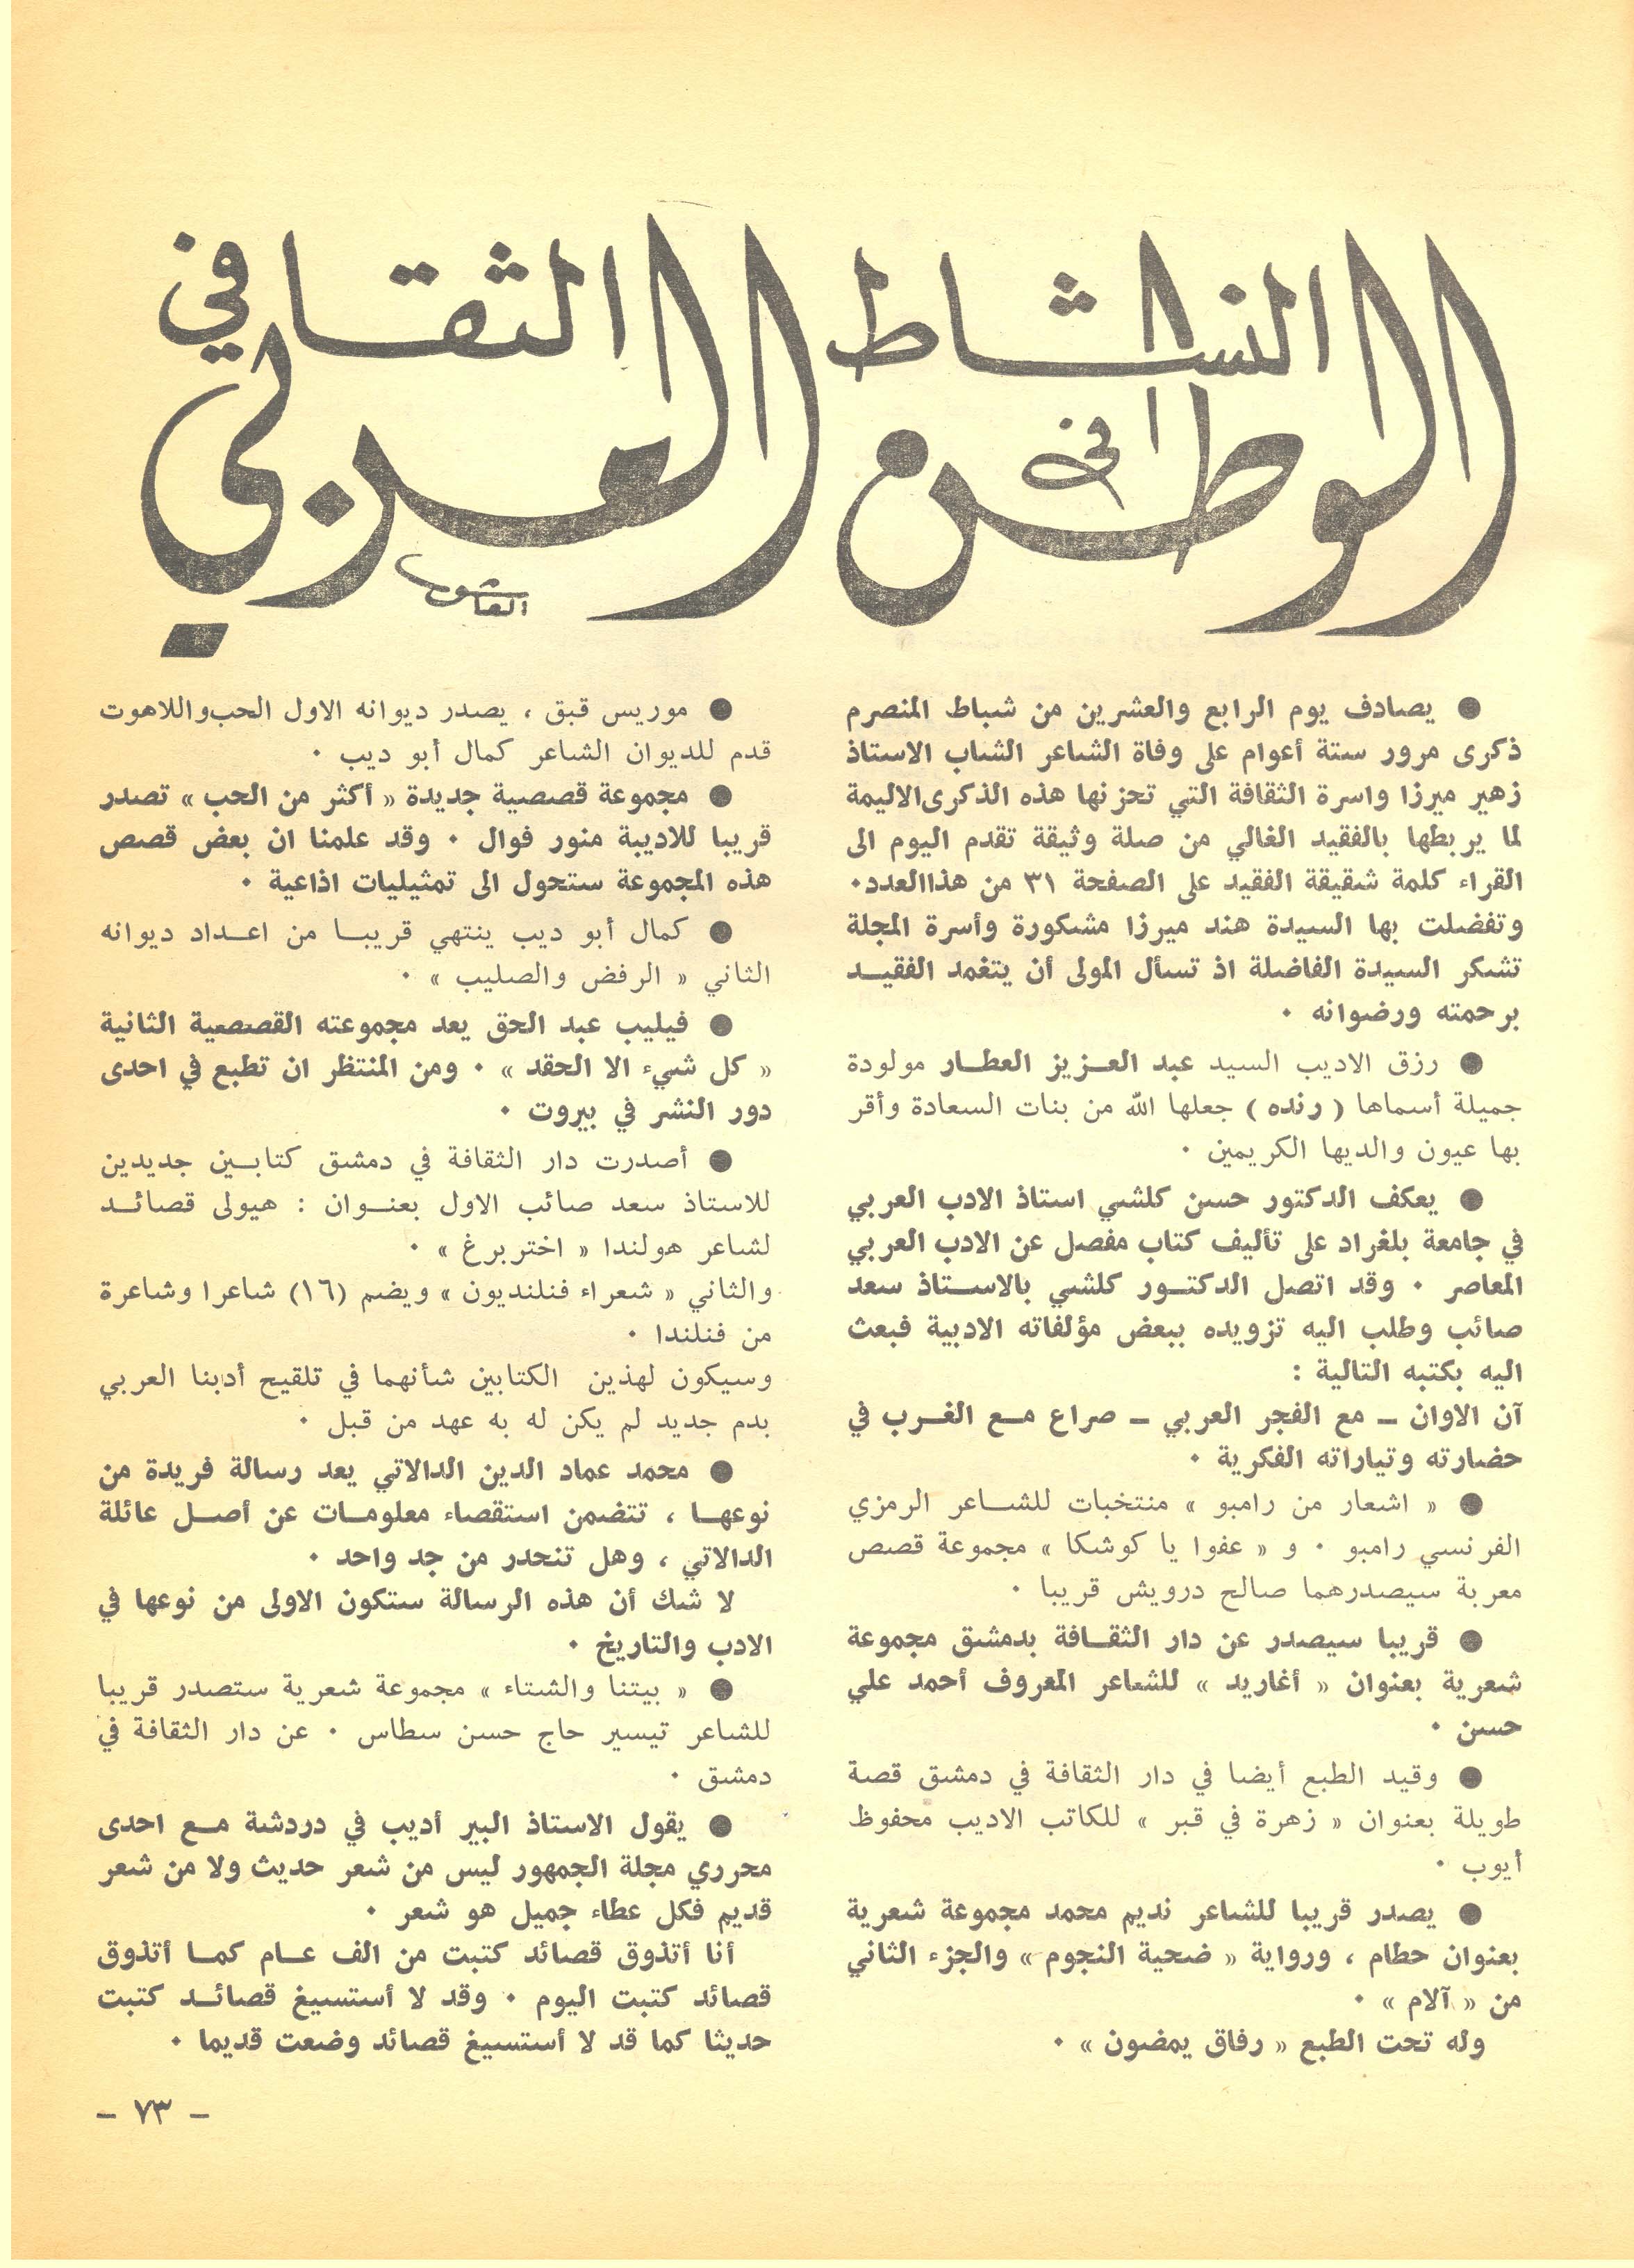 النشاط الثقافي
في
الوطن العربي
العاشق
● يصادف يوم الرابع والعشرين من شباط المنصرم
ذكرى مرور ستة أعوام على وفاة الشاعر الشاب الاستاذ
زهير ميرزا واسرة الثقافة التي تحزنها هذه الذكرى الاليمة
لما يربطها بالفقيد الغالي من صلة وثيقة تقدم اليوم الى
القراء كلمة شقيقة الفقيد على الصفحة ٣١ من هذا العدد ٠
وتفضلت بها السيدة هند ميرزا مشكورة وأسرة المجلة
تشكر السيدة الفاضلة اذ تسأل المولى أن يتغمد الفقيـد
برحمته ورضوانه ٠
● رزق الاديب السيد عبد العـزيز العطـار مولودة
جميلة أسماها ( رنده ) جعلها الله من بنات السعادة وأقر
بها عيون والديها الكريمين ٠
● يعكف الدكتور حسن كلشي استاذ الادب العربي
في جامعة بلغراد على تأليف كتاب مفصل عن الادب العربي
المعاصر ٠ وقد اتصل الدكتـور كلشي بالاسـتاذ سعد
صائب وطلب اليه تزويده ببعض مؤلفاته الادبية فبعث
اليه بكتبه التالية :
آن الاوان ــ مع الفجر العربي ــ صراع مـع الغـرب في
حضارته وتياراته الفكرية ٠
● « اشعار من رامبو » منتخبات للشـاعر الرمزي
الفرنسي رامبو ٠ و « عفوا يا كوشكا » مجموعة قصص
معربة سيصدرهما صالح درويش قريبا ٠
● قريبا سيصدر عن دار الثقـافة بدمشق مجموعة
شعرية بعنوان « أغاريد » للشاعر المعروف أحمد علي
حسن ٠
● وقيد الطبع أيضا في دار الثقافة في دمشق قصة
طويلة بعنوان « زهرة في قبر » للكاتب الاديب محفوظ
أيوب ٠
● يصدر قريبا للشاعر نديم محمد مجموعة شعرية
بعنوان حطام ، ورواية « ضحية النجوم » والجزء الثاني
من « آلام » ٠
وله تحت الطبع « رفاق يمضون » ٠
● موريس قبق ، يصدر ديوانه الاول الحب واللاهوت
قدم للديوان الشاعر كمال أبو ديب ٠
● مجموعة قصصية جديدة « أكثر من الحب » تصدر
قريبا للاديبة منور فوال ٠ وقد علمنا ان بعض قصص
هذه المجموعة ستحول الى تمثيليات اذاعية ٠
● كمال أبو ديب ينتهي قريبـا من اعـداد ديوانه
الثاني « الرفض والصليب » ٠
● فيليب عبد الحق يعد مجموعته القصصية الثانية
« كل شيء الا الحقد » ٠ ومن المنتظر ان تطبع في احدى
دور النشر في بيروت ٠
● أصدرت دار الثقافة في دمشق كتابـين جديدين
للاستاذ سعد صائب الاول بعنـوان : هيولى قصائـد
لشاعر هولندا « اختربرغ » ٠
والثاني « شعراء فنلنديون » ويضم (١٦) شاعرا وشاعرة
من فنلندا ٠
وسيكون لهذين الكتابين شأنهما في تلقيح أدبنا العربي
بدم جديد لم يكن له به عهد من قبل ٠
● محمد عماد الدين الدالاتي يعد رسالة فريدة من
نوعهـا ، تتضمن استقصاء معلومـات عن أصـل عائلة
الدالاتي ، وهل تنحدر من جد واحد ٠
لا شك أن هذه الرسالة ستكون الاولى من نوعها في
الادب والتاريخ ٠
● « بيتنا والشتاء » مجموعة شعرية ستصدر قريبا
للشاعر تيسير حاج حسن سطاس ٠ عن دار الثقافة في
دمشق ٠
● يقول الاستاذ البير أديب في دردشة مـع احدى
محرري مجلة الجمهور ليس من شعر حديث ولا من شعر
قديم فكل عطاء جميل هو شعر ٠
أنا أتذوق قصائد كتبت من الف عـام كمـا أتذوق
قصائد كتبت اليوم ٠ وقد لا أستسيغ قصائـد كتبت
حديثا كما قد لا أستسيغ قصائد وضعت قديما ٠
– ٧٣ –